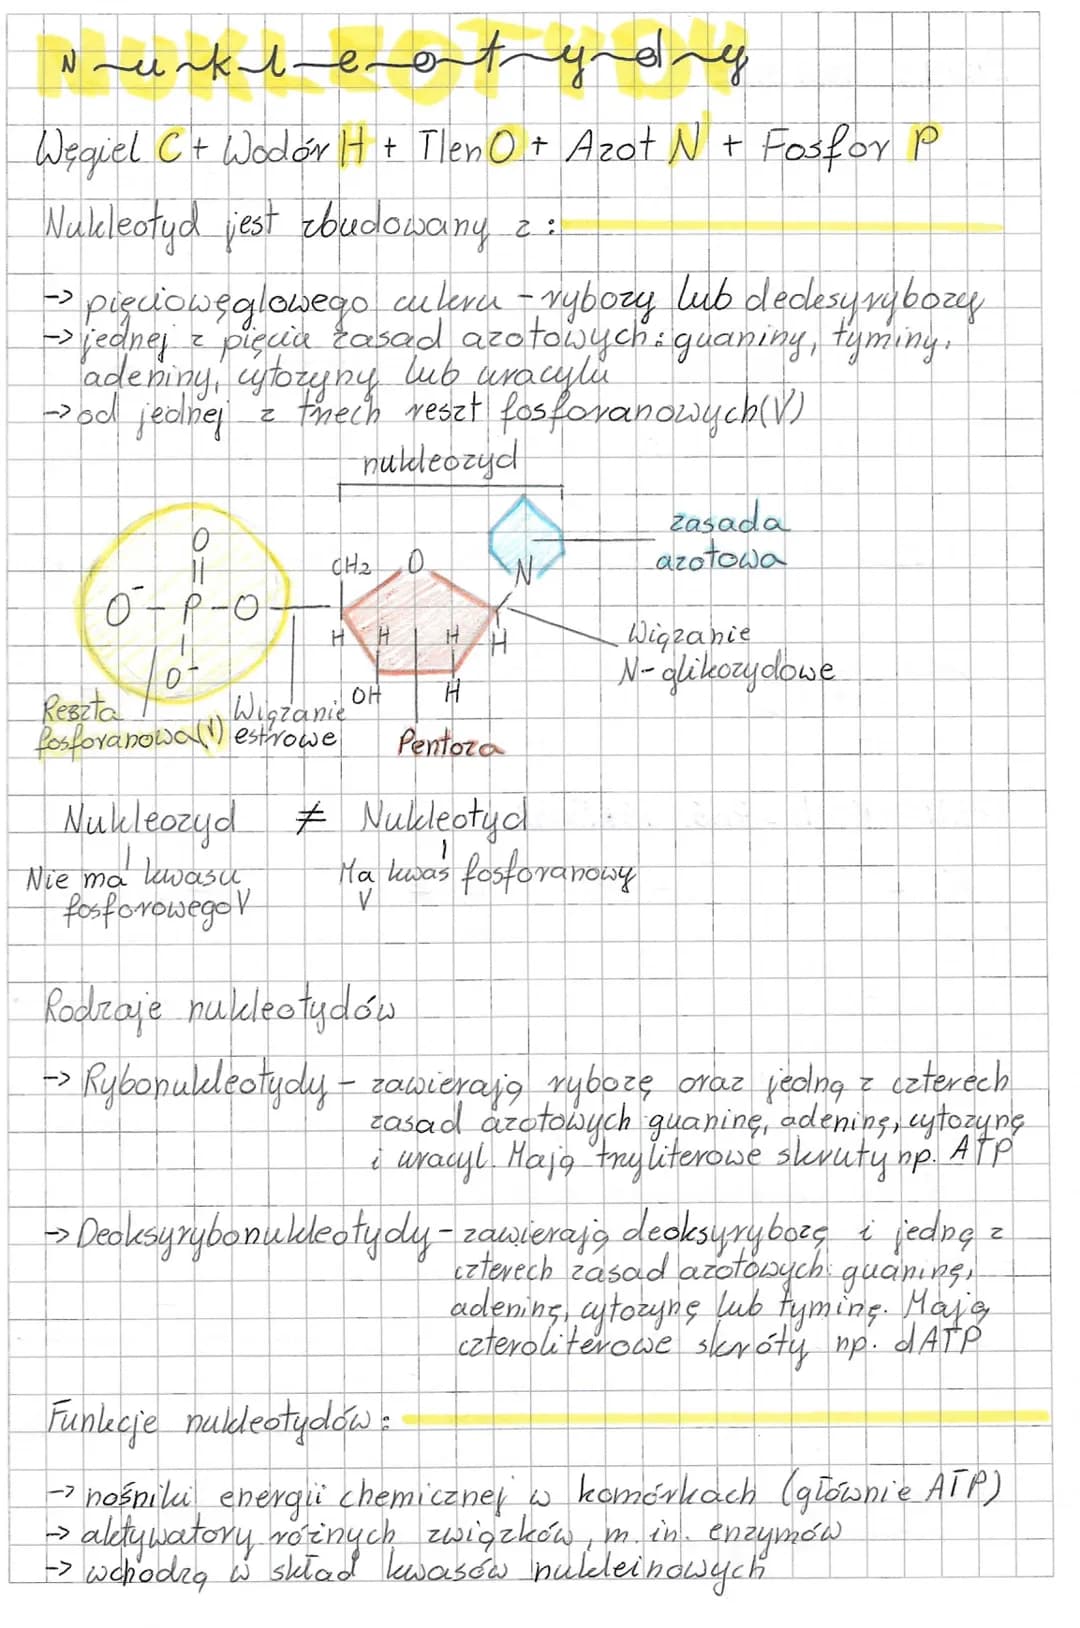 Nukleotydy
NUKLEOTYDY
Węgiel C + Wodór H + Tlen O + Azot N + Fosfor P
Nukleotyd jest zbudowany z:
-> pięciowęglowego cukru - rybozy lub dedesyrybozy
-> jednej z pięcia zasad azotowych: guaniny, tyminy,
adeniny, cytozyny lub uracylu
-> od jednej z trzech reszt fosforanowych(V)
nukleozyd
zasada
azotowa
O
||
O⁻ - P - O
O⁻
CH2 O
N
H H H H
OH H
Wiązanie
N-glikozydowe
Reszta
fosforanowa(V)
Wiązanie
estrowe
Pentoza
Nukleozyd ≠ Nukleotyd
Nie ma kwasu
fosforowego V
Ma kwas fosforanowy
V
Rodzaje nukleotydów
-> Rybonukleotydy - zawierają rybozę oraz jedną z czterech
zasad azotowych guaninę, adeninę, cytozynę
i uracyl. Mają tryliterowe skruty np. ATP
-> Deoksyrybonukleotydy - zawierają deoksyrybozę i jedną z
czterech zasad azotowych: guaninę,
adeninę, cytozynę lub tyminę. Mają
czteroliterowe skróty np. dATP
Funkcje nukleotydów:
-> nośniki energii chemicznej w komórkach (głównie ATP)
-> aktywatory różnych związków, m.in. enzymów
-> wchodzą w skład kwasów nukleinowych